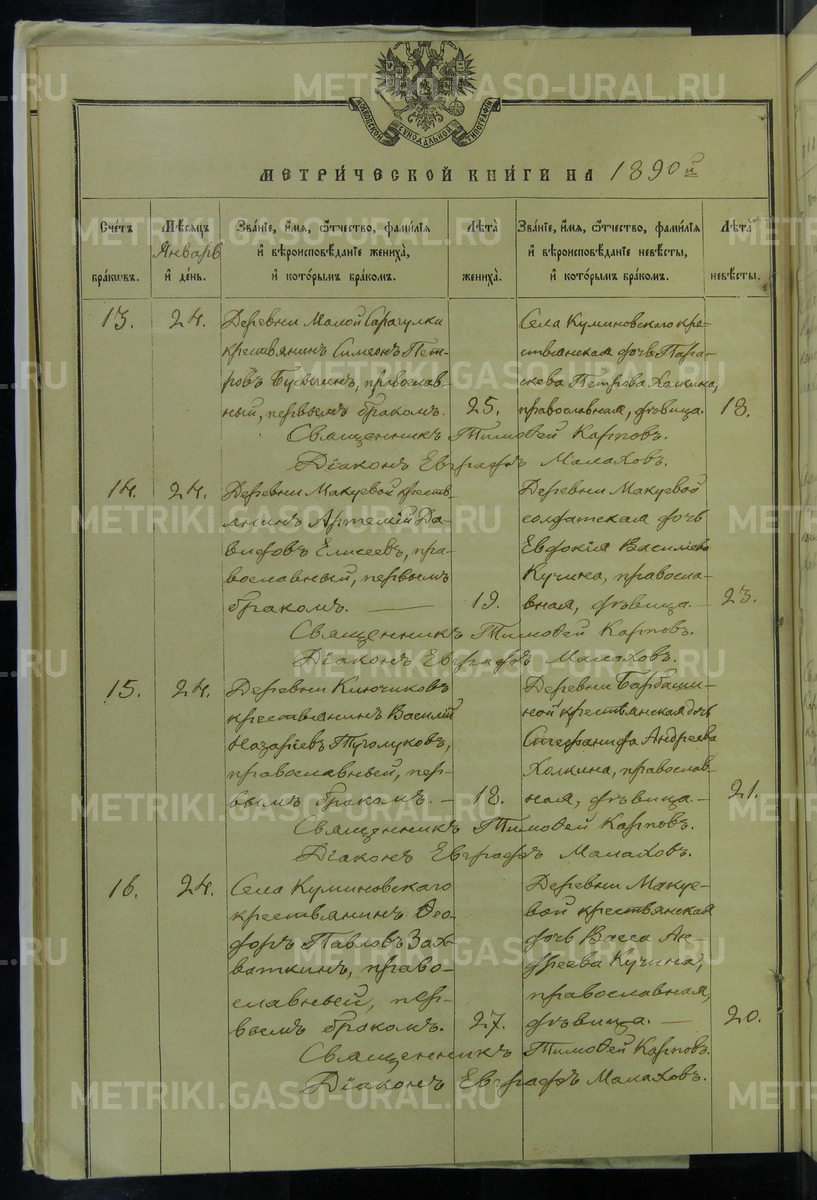 МОСКОВСКОЙ СѴНОДАЛЬНОЙ ТИПОГРАФІИ
МЕТРИ́ЧЕСКОЙ КНИ́ГИ НА 1890й
Сче́тъ бра́кѡвъ.
Мѣ́сяцъ Январь и҆ де́нь.
Зва́ніе, и҆́мя, ѻ҆́тчество, фами́лія и҆ вѣроисповѣ́даніе жениха̀, и҆ кото́рымъ бра́комъ.
Лѣта̀ жениха̀.
Зва́ніе, и҆́мя, ѻ҆́тчество, фами́лія и҆ вѣроисповѣ́даніе невѣ́сты, и҆ кото́рымъ бра́комъ.
Лѣта̀ невѣ́сты.
13.
24.
Деревни Малой Сарагулки
крестьянинъ Симеонъ Пет-
ровъ, православ-
ный, первымъ бракомъ.
25.
Села Куминовскаго кре-
стьянская дочь Пара-
скева Петрова Холкина,
православная, дѣвица.
18.
Священникъ Тимоѳей Карповъ.
Діаконъ Евграфъ Малаховъ.
14.
24.
Деревни Макуевой кресть-
янинъ Артемій Да-
видовъ Елисеевъ, пра-
вославный, первымъ
бракомъ. —
19.
Деревни Макуевой
солдатская дочь
Евдокія Василіева
Кучина, правосла-
вная, дѣвица. —
23.
Священникъ Тимоѳей Карповъ.
Діаконъ Евграфъ Малаховъ.
15.
24.
Деревни Ключиковъ
крестьянинъ Василій
Назаріевъ Туголуковъ,
православный, пер-
вымъ бракомъ. —
18.
Деревни Барбаши-
ной крестьянская дочь
Стефанида Андреева
Холкина, православ-
ная, дѣвица. —
21.
Священникъ Тимоѳей Карповъ.
Діаконъ Евграфъ Малаховъ.
16.
24.
Села Куминовскаго
крестьянинъ Ѳео-
доръ Павловъ Зах-
ваткинъ, право-
славный, пер-
вымъ бракомъ.
27.
Деревни Макуе-
вой крестьянская
дочь Васса Ан-
дреева Кучина,
православная,
дѣвица. —
20.
Священникъ Тимоѳей Карповъ.
Діаконъ Евграфъ Малаховъ.
METRIKI.GASO-URAL.RU